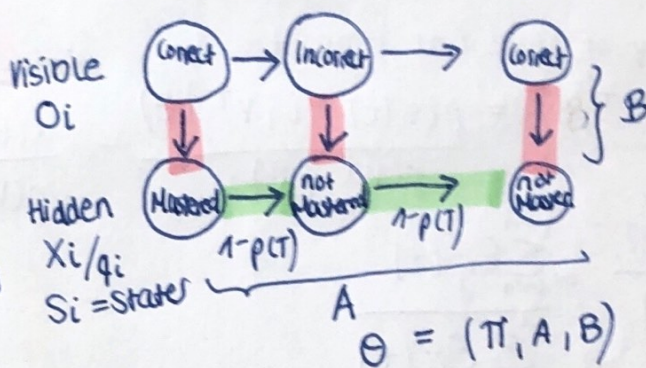 Visible
Oi
Correct
Incorrect
Correct
B
Hidden
Xi/qi
Si = States
Mastered
not
Mastered
not
Mastered
1-p(T)
1-p(T)
A
θ = (π, A, B)